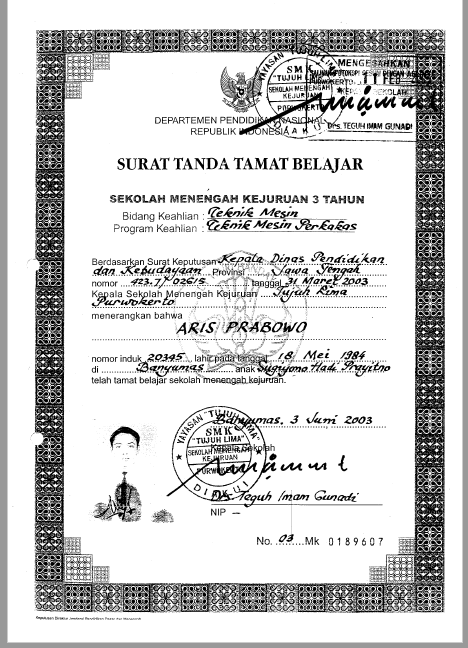 MENGESAHKAN
11 FEB
KEPALA SEKOLAH
Drs. TEGUH IMAM GUNADI
YAYASAN "TUJUH LIMA"
SMK
"TUJUH LIMA"
SEKOLAH MENENGAH
KEJURUAN
PURWOKERTO
DIAKUI
DEPARTEMEN PENDIDIKAN NASIONAL
REPUBLIK INDONESIA
SURAT TANDA TAMAT BELAJAR
SEKOLAH MENENGAH KEJURUAN 3 TAHUN
Bidang Keahlian : Teknik Mesin
Program Keahlian : Teknik Mesin Perkakas
Berdasarkan Surat Keputusan Kepala Dinas Pendidikan
dan Kebudayaan Provinsi Jawa Tengah
nomor 423.7/02615 tanggal 31 Maret 2003
Kepala Sekolah Menengah Kejuruan Tujuh Lima
Purwokerto
menerangkan bahwa
ARIS PRABOWO
nomor induk 20345 lahir pada tanggal 18 Mei 1984
di Banyumas anak Sugiyono Hadi Prayitno
telah tamat belajar sekolah menengah kejuruan.
Banyumas, 3 Juni 2003
Kepala Sekolah
YAYASAN "TUJUH LIMA"
SMK
"TUJUH LIMA"
SEKOLAH MENENGAH
KEJURUAN
PURWOKERTO
DIAKUI
Drs. Teguh Imam Gunadi
NIP –
No. 03 Mk 0189607